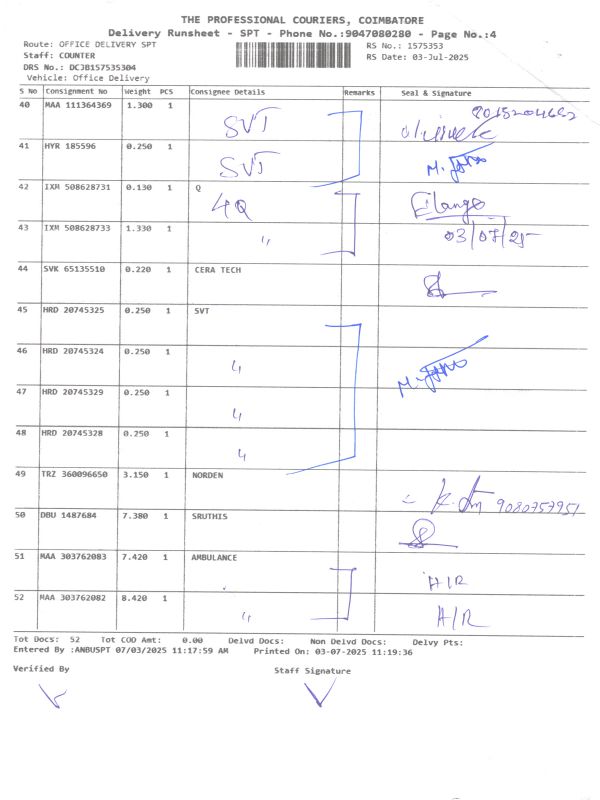 THE PROFESSIONAL COURIERS, COIMBATORE
Delivery Runsheet - SPT - Phone No.:9047080280 - Page No.:4
Route: OFFICE DELIVERY SPT RS No.: 1575353
Staff: COUNTER RS Date: 03-Jul-2025
DRS No.: DCJB157535304
Vehicle: Office Delivery
S No Consignment No Weight PCS Consignee Details Remarks Seal & Signature
40 MAA 111364369 1.300 1 SVT
41 HYR 185596 0.250 1 SVT
42 IXM 508628731 0.130 1 Q
4Q Elango
43 IXM 508628733 1.330 1 〃 03/07/25
44 SVK 65135510 0.220 1 CERA TECH
45 HRD 20745325 0.250 1 SVT
46 HRD 20745324 0.250 1 〃
47 HRD 20745329 0.250 1 〃
48 HRD 20745328 0.250 1 〃
49 TRZ 360096650 3.150 1 NORDEN
9080757951
50 DBU 1487684 7.380 1 SRUTHIS
51 MAA 303762083 7.420 1 AMBULANCE
A/R
52 MAA 303762082 8.420 1 〃 A/R
Tot Docs: 52 Tot COD Amt: 0.00 Delvd Docs: Non Delvd Docs: Delvy Pts:
Entered By :ANBUSPT 07/03/2025 11:17:59 AM Printed On: 03-07-2025 11:19:36
Verified By Staff Signature